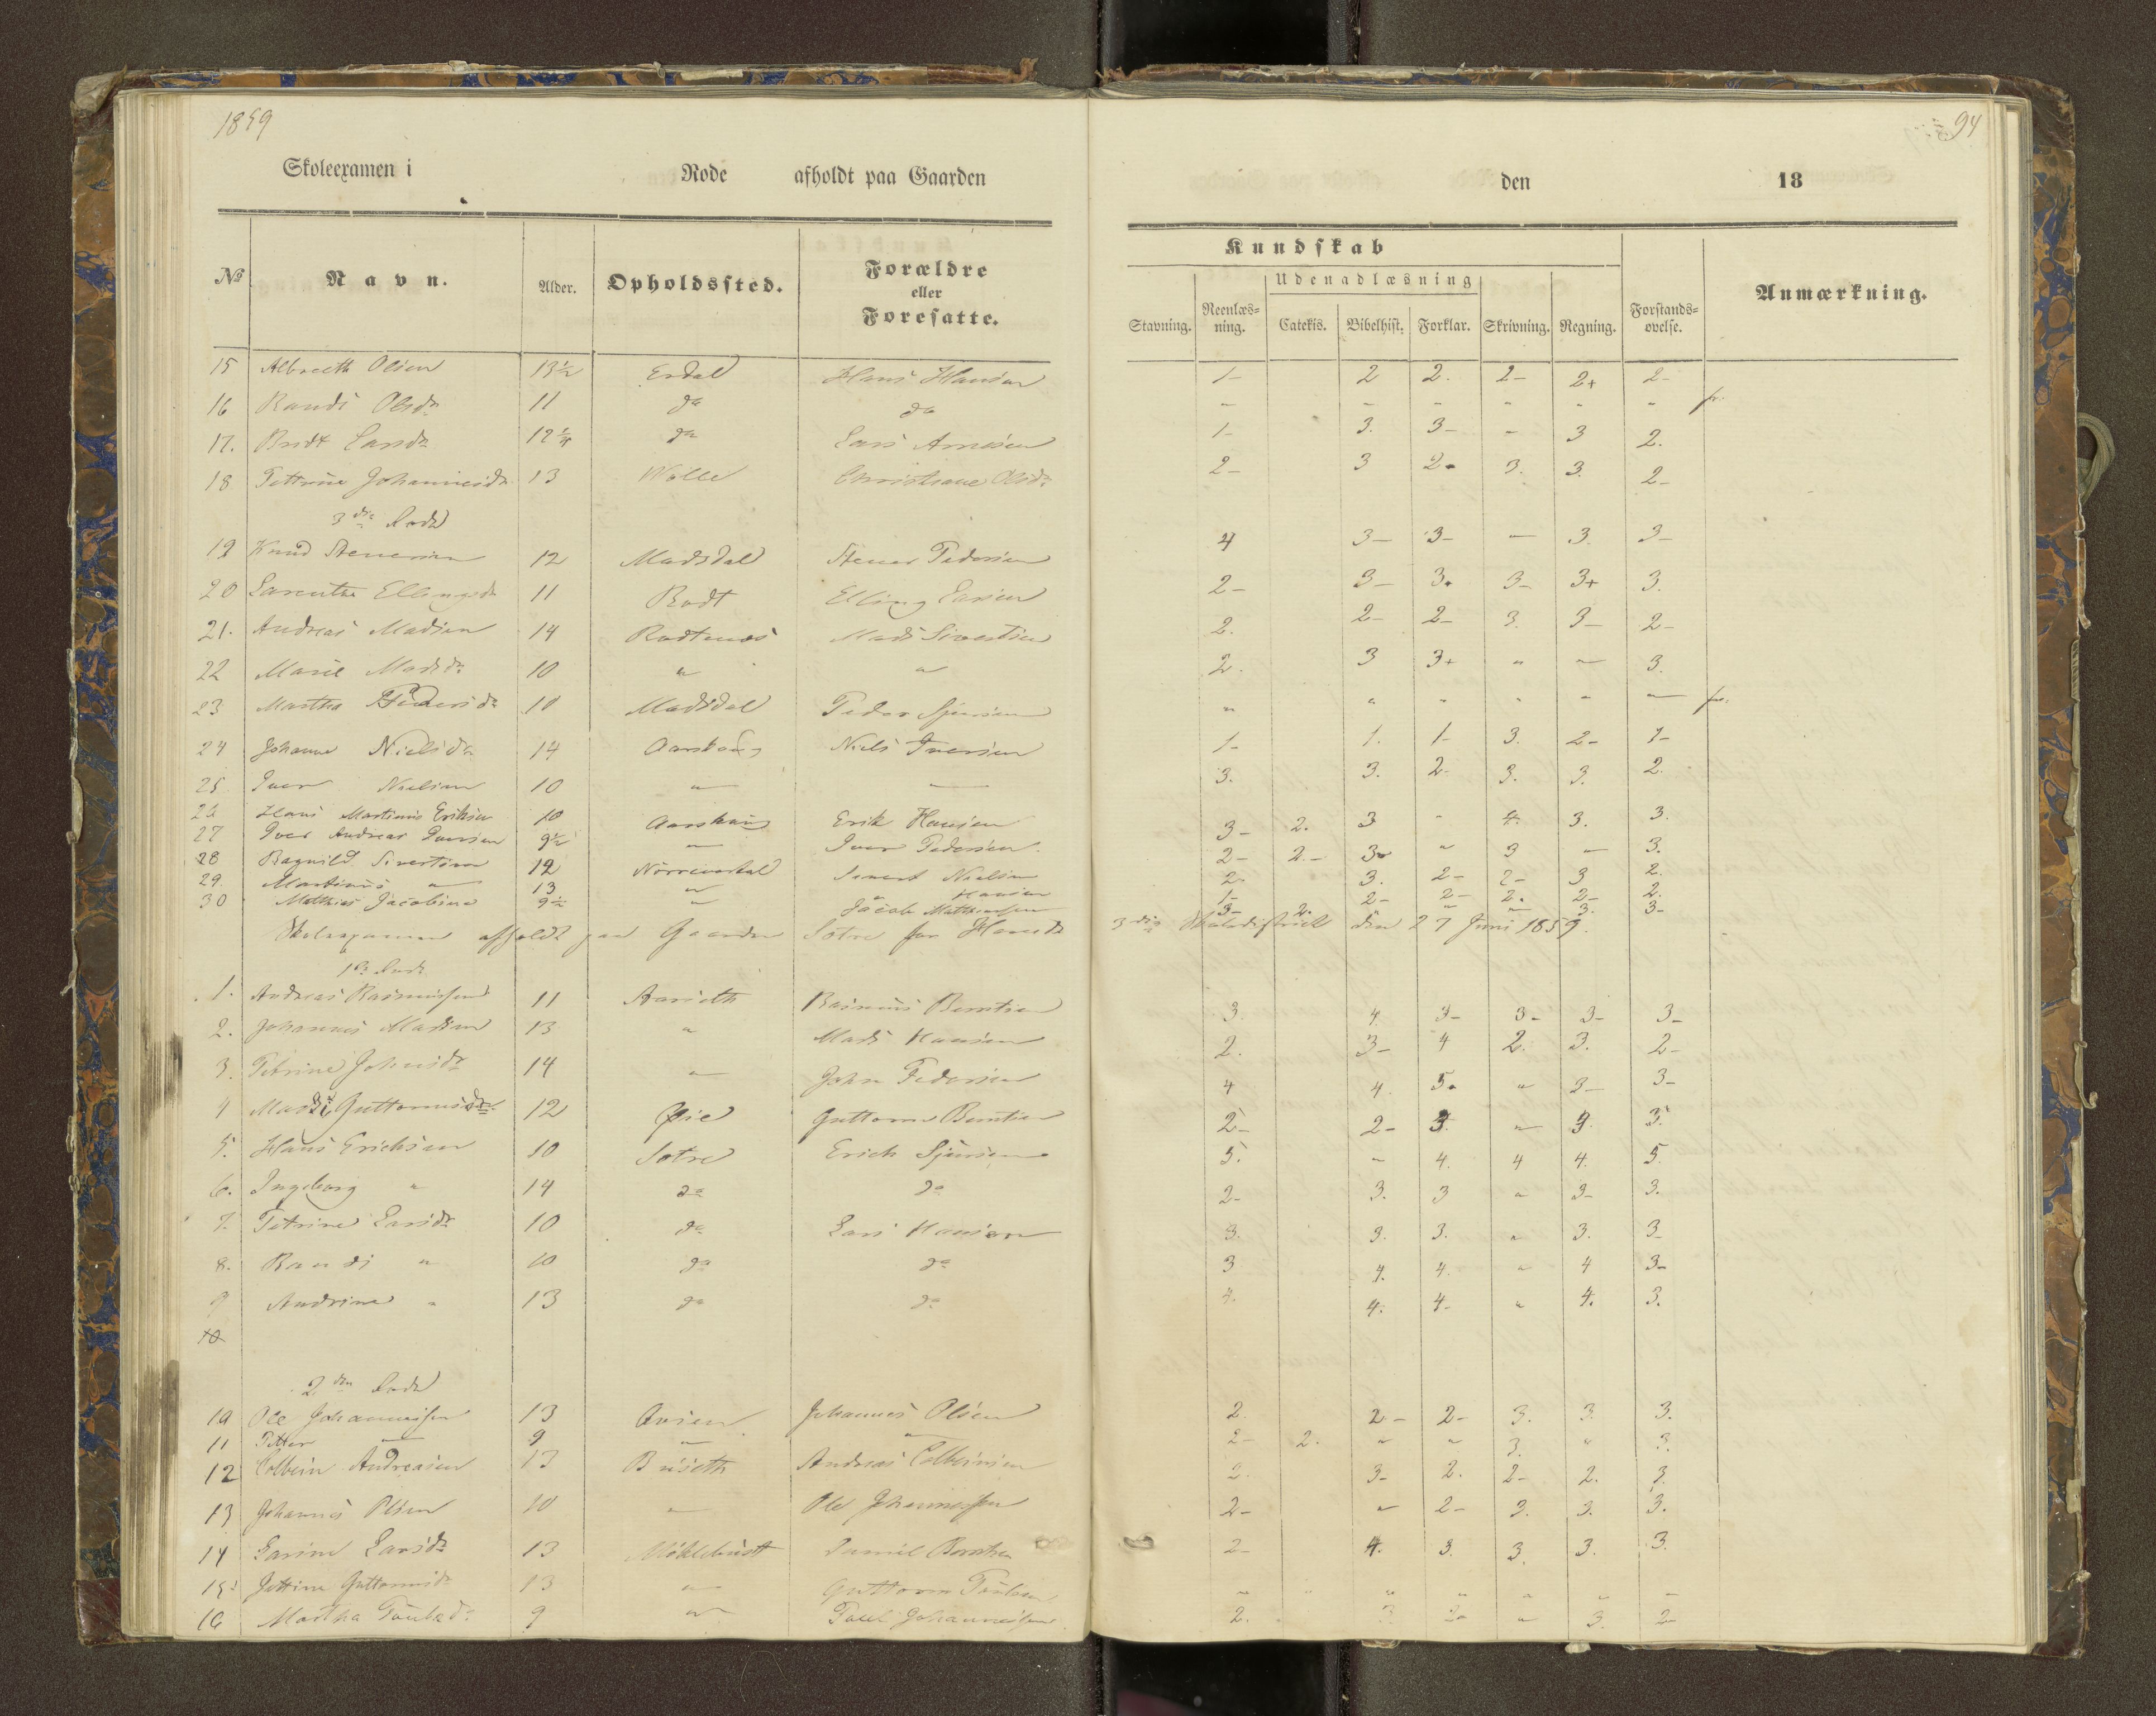 1859
94
Skoleexamen i Rode afholdt paa Gaarden den 18
Kundskab
No Navn. Alder. Opholdssted. Forældre eller Foresatte. Stavning. Reenlæsning. Udenadlæsning Catekis. Bibelhist. Forklar. Skrivning. Regning. Forstandsøvelse. Anmærkning.
15 Albrecth Olsen 13½ Erdal Hans Hansen 1- 2 2. 2- 2+ 2-
16 Randi Olsdr 11 do do - - - " - - fr.
17. Brit Larsdr 12¼ do Lars Arnesen 1- 3. 3- - 3 2.
18 Pettrine Johannesdr 13 Wolle Christiane Olsdr 2- 3 2. 3. 3. 2-
3die Rode
19 Knud Stenersen 12 Madsdal Stener Pedersen 4 3- 3- - 3. 3-
20 Ellingsdr 11 Rodt Elling Larsen 2- 3- 3. 3- 3+ 3.
21. Andreas Madsen 14 Rodtnes Mads Sivertsen 2. 2- 2- 3. 3- 2-
22 Marie Madsdr 10 " " 2. 3 3+ " " 3.
23 Martha Pedersdr 10 Madsdal Peder Sjursen " " " " " - fr.
24 Johanne Nielsdr 14 Aarskoug Niels Iversen 1- 1. 1- 3. 2- 1-
25 Iver Nielsen 10 " - 3. 3. 2- 3. 3. 2.
26 Hans Martinus Eriksen 10 Aarskoug Erik Hansen 3- 2. 3 " 4. 3. 3.
27 Iver Andreas Iversen 9½ " Iver Pedersen 2- 2.- 3- " 3 - 3.
28 Ragnild Sivertsen 12 Nörrevartdal Sivert Nielsen 2- 3. 2- 2- 3 2.
29. Martinus " 13 " " Hansen 1- 2- 2- 2. 2- 2.
30 Matthias Jacobsen 9½ " Jacob Matthiassen 3- 2. " " 3. 3-
Skoleexamen afholdt paa Gaarden Sætre for Hareids 3die Skoledistrict den 27 Juni 1859.
1ste Rode
1. Andreas Rasmussen 11 Aarseth Rasmus Berntsen 3. 4. 3- 3- 3- 3-
2. Johannes Madsen 13 " Mads Hansen 2. 3- 4 2. 3. 2-
3. Petrine Johnsdr 14 " John Pedersen 4 4. 5. " 3- 3-
4 Guttormsdr 12 Øie Guttorm Berntsen 2- 2- 3. " 3. 3.
5. Hans Erichsen 10 Sætre Erich Sjursen 5. - 4. 4 4. 5.
6. Ingeborg " 14 do do 2- 3. 3 " 3- 3.
7. Petrine Larsdr 10 do Lars Hansen 3. 3. 3. " 3. 3-
8. Randi " 10 do do 3 4. 4. " 4 3-
9 Andrine " 13 do do 4. 4. 4- " 4. 3.
10
2den Rode
10 Ole Johannessen 13 Ovsen Johannes Olsen 2. 2- 2- 3. 3. 3.
11 Petter - 9 - " 2- 2. " " 3. " 3.
12 Colbein Andreasen 13 Brüseth Andreas Colbeinsen 2. 3- 2. 2- 2. 3.
13 Johannes Olsen 10 " Ole Johannessen 2- " 2- 3. 3. 3.
14 Larsdr 13 Möklebust Berntsen 2- 4. 3. 3. 3. 3.
15. Guttormsdr 13 " Guttorm " " " " " " -
16 Martha 9 " Johannessen 2. 3. 2- " 3. 2-